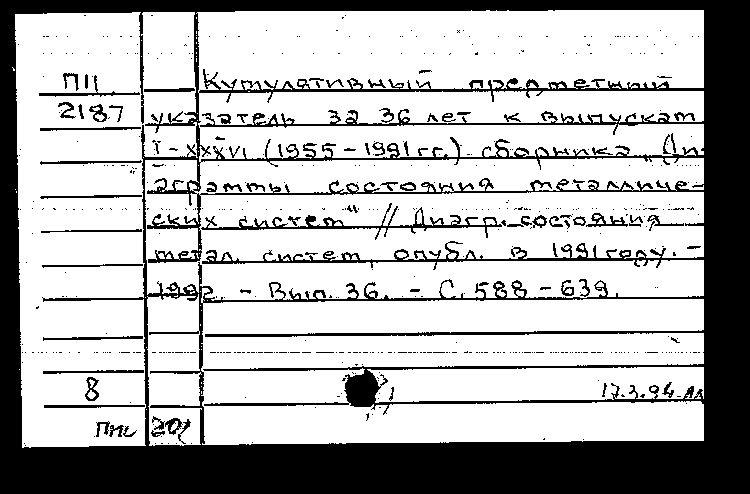 ПII Кумулятивный предметный
2187 указатель за 36 лет к выпускам
I-XXXVI (1955-1991 гг.) сборника „Ди-
аграммы состояния металличе-
ских систем" // Диагр. состояния
метал. систем, опубл. в 1991 году. -
1992. - Вып. 36. - С. 588-639.
8 17.3.94